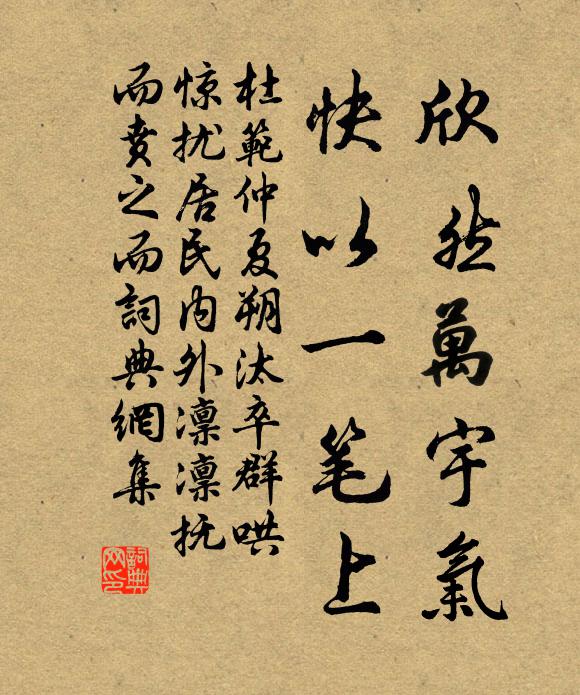 欣然萬宇氣
快以一笔上
杜範仲夏朔汰卒群哄
惊扰居民内外凛凛抚
而賁之而詞典網集
詞典
网印